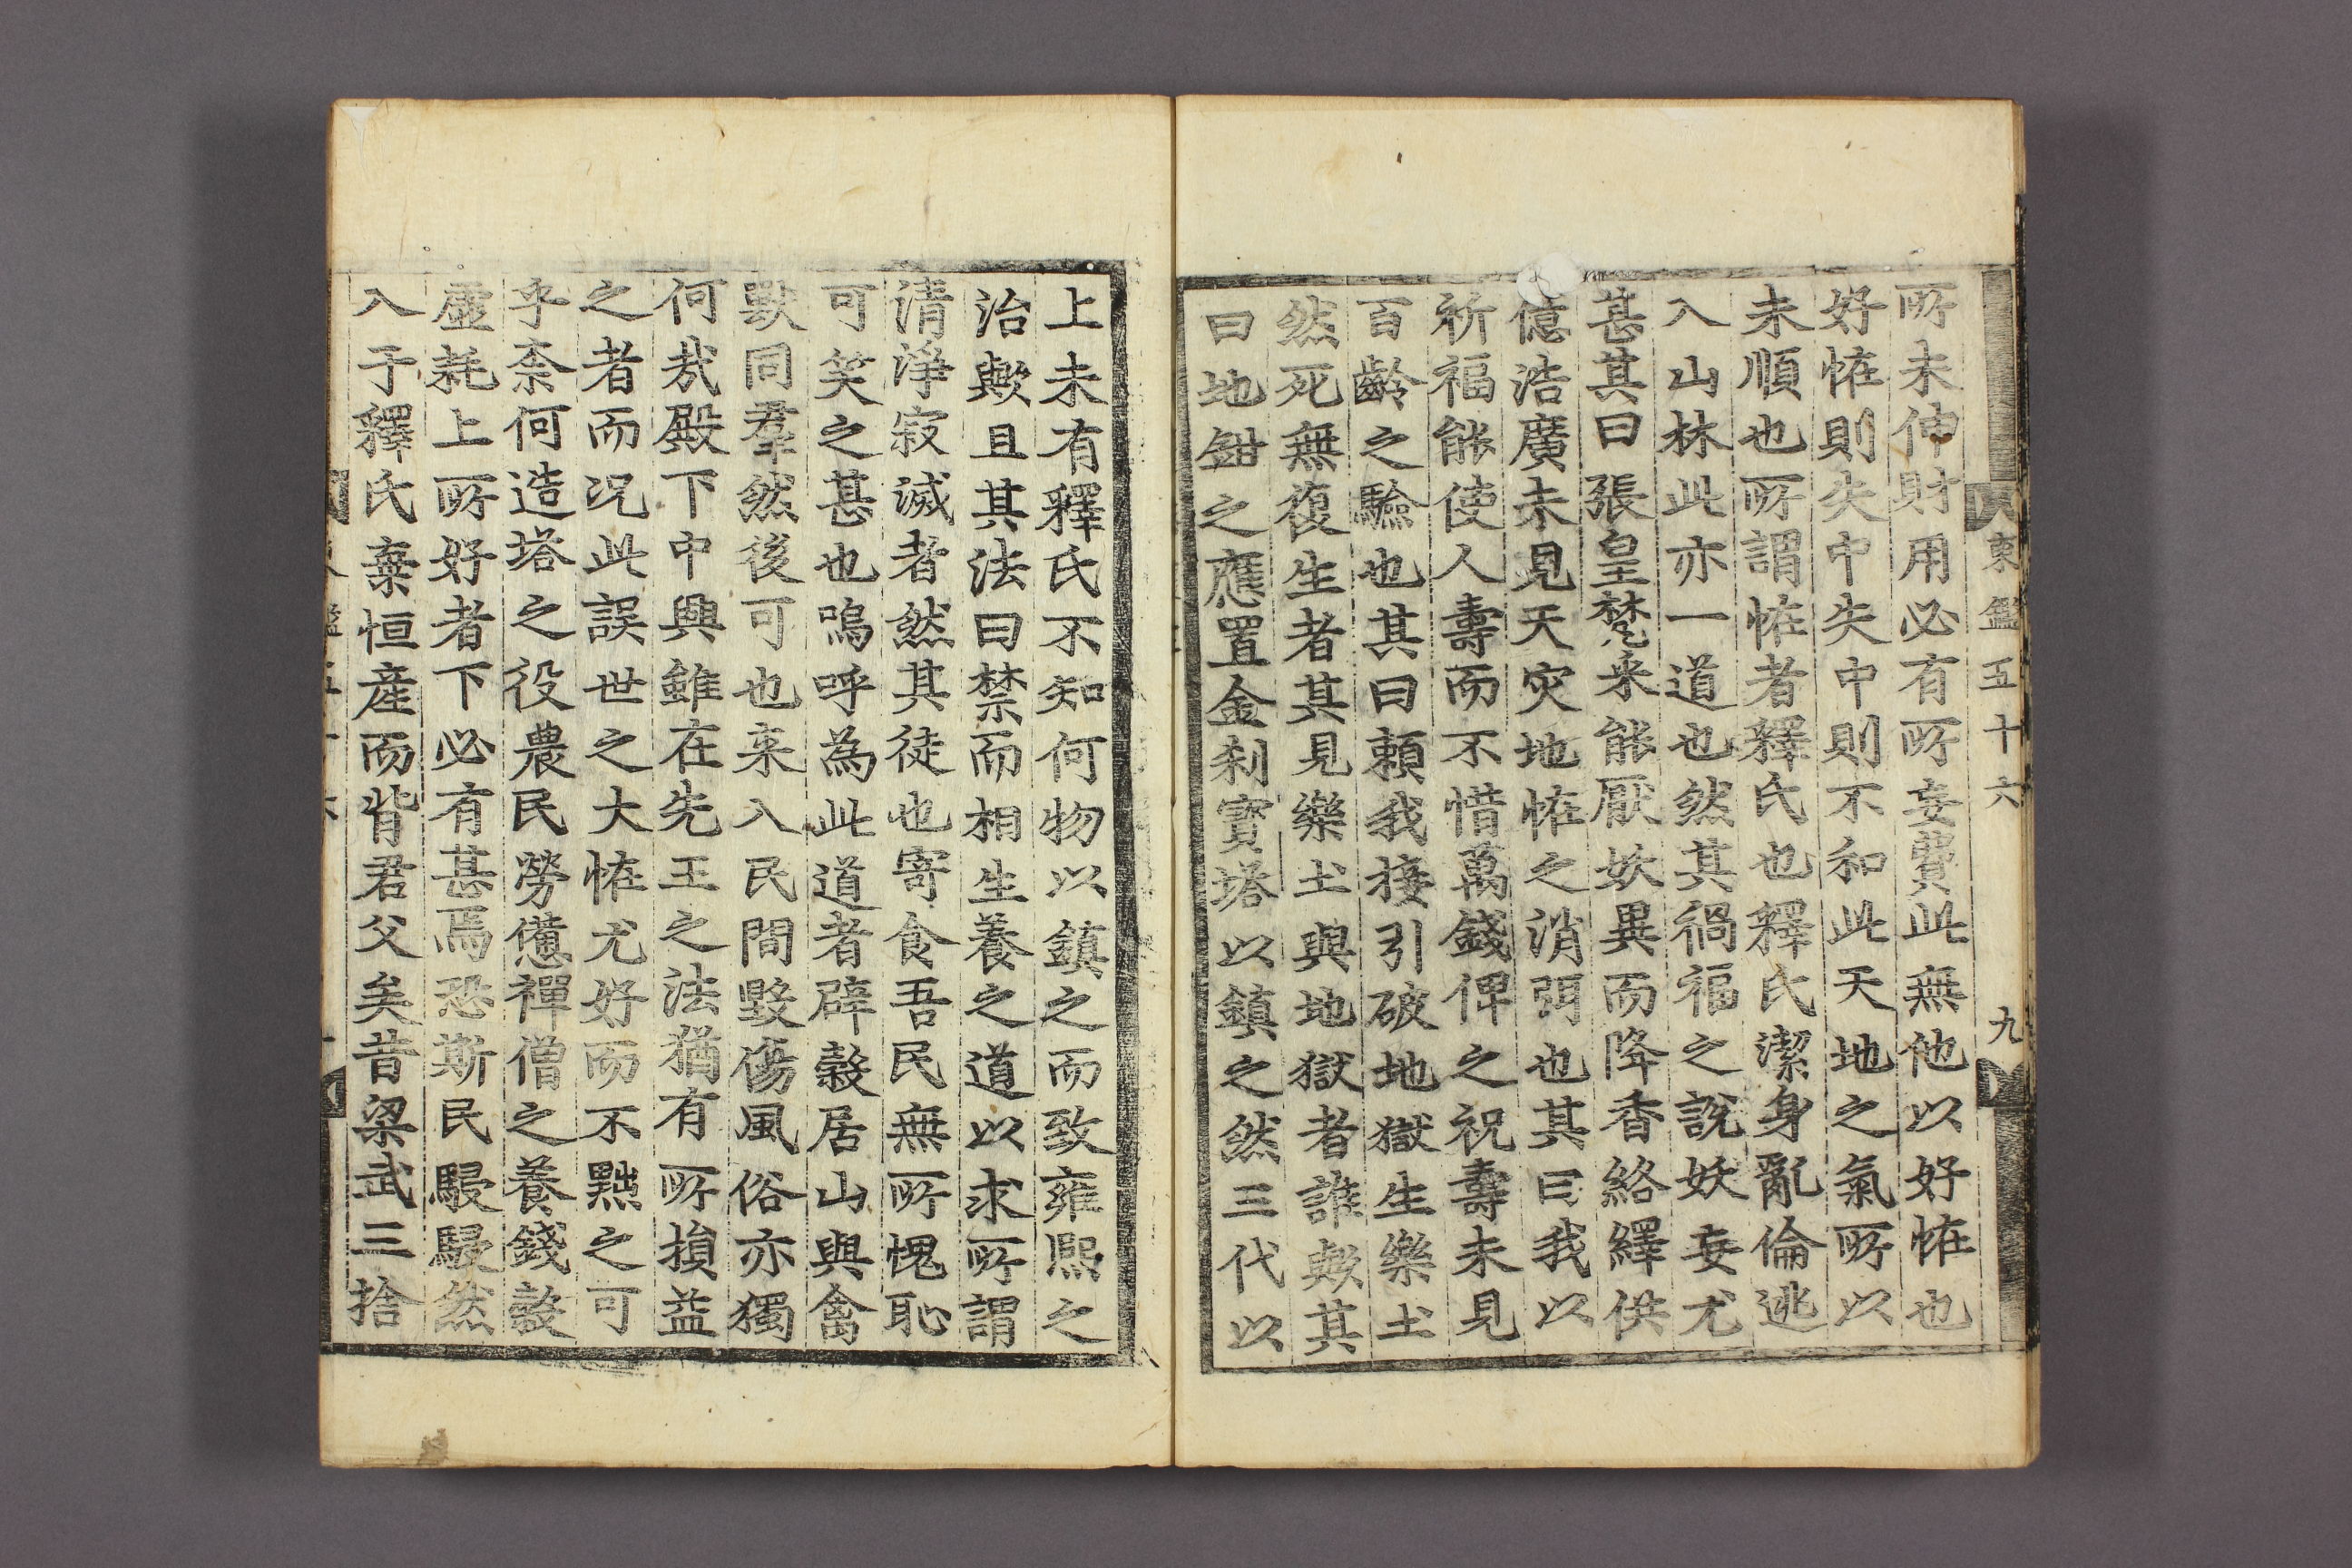 東鑑五十六 九
所未伸財用必有所妄費此無他以好恠也
好恠則失中失中則不和此天地之氣所以
未順也所謂恠者釋氏也釋氏潔身亂倫逃
入山林此亦一道也然其禍福之說妖妄尤
甚其曰張皇梵采能厭妖異而降香絡繹供
億浩廣未見天灾地恠之消弭也其曰我以
祈福能使人壽而不惜萬錢俾之祝壽未見
百齡之驗也其曰頼我接引破地獄生樂土
然死無復生者其見樂土與地獄者誰歟其
曰地鉗之應置金刹寳塔以鎮之然三代以
上未有釋氏不知何物以鎮之而致雍熙之
治歟且其法曰禁而相生養之道以求所謂
清淨寂滅者然其徒也寄食吾民無所愧恥
可笑之甚也嗚呼為此道者辟穀居山與禽
獸同羣然後可也来入民間毀傷風俗亦獨
何㦲殿下中興雖在先王之法猶有所損益
之者而况此誤世之大恠尤好而不黜之可
乎柰何造塔之役農民勞憊禪僧之養錢穀
虛耗上所好者下必有甚焉恐斯民駸駸然
入于釋氏棄恒産而背君父矣昔梁武三捨